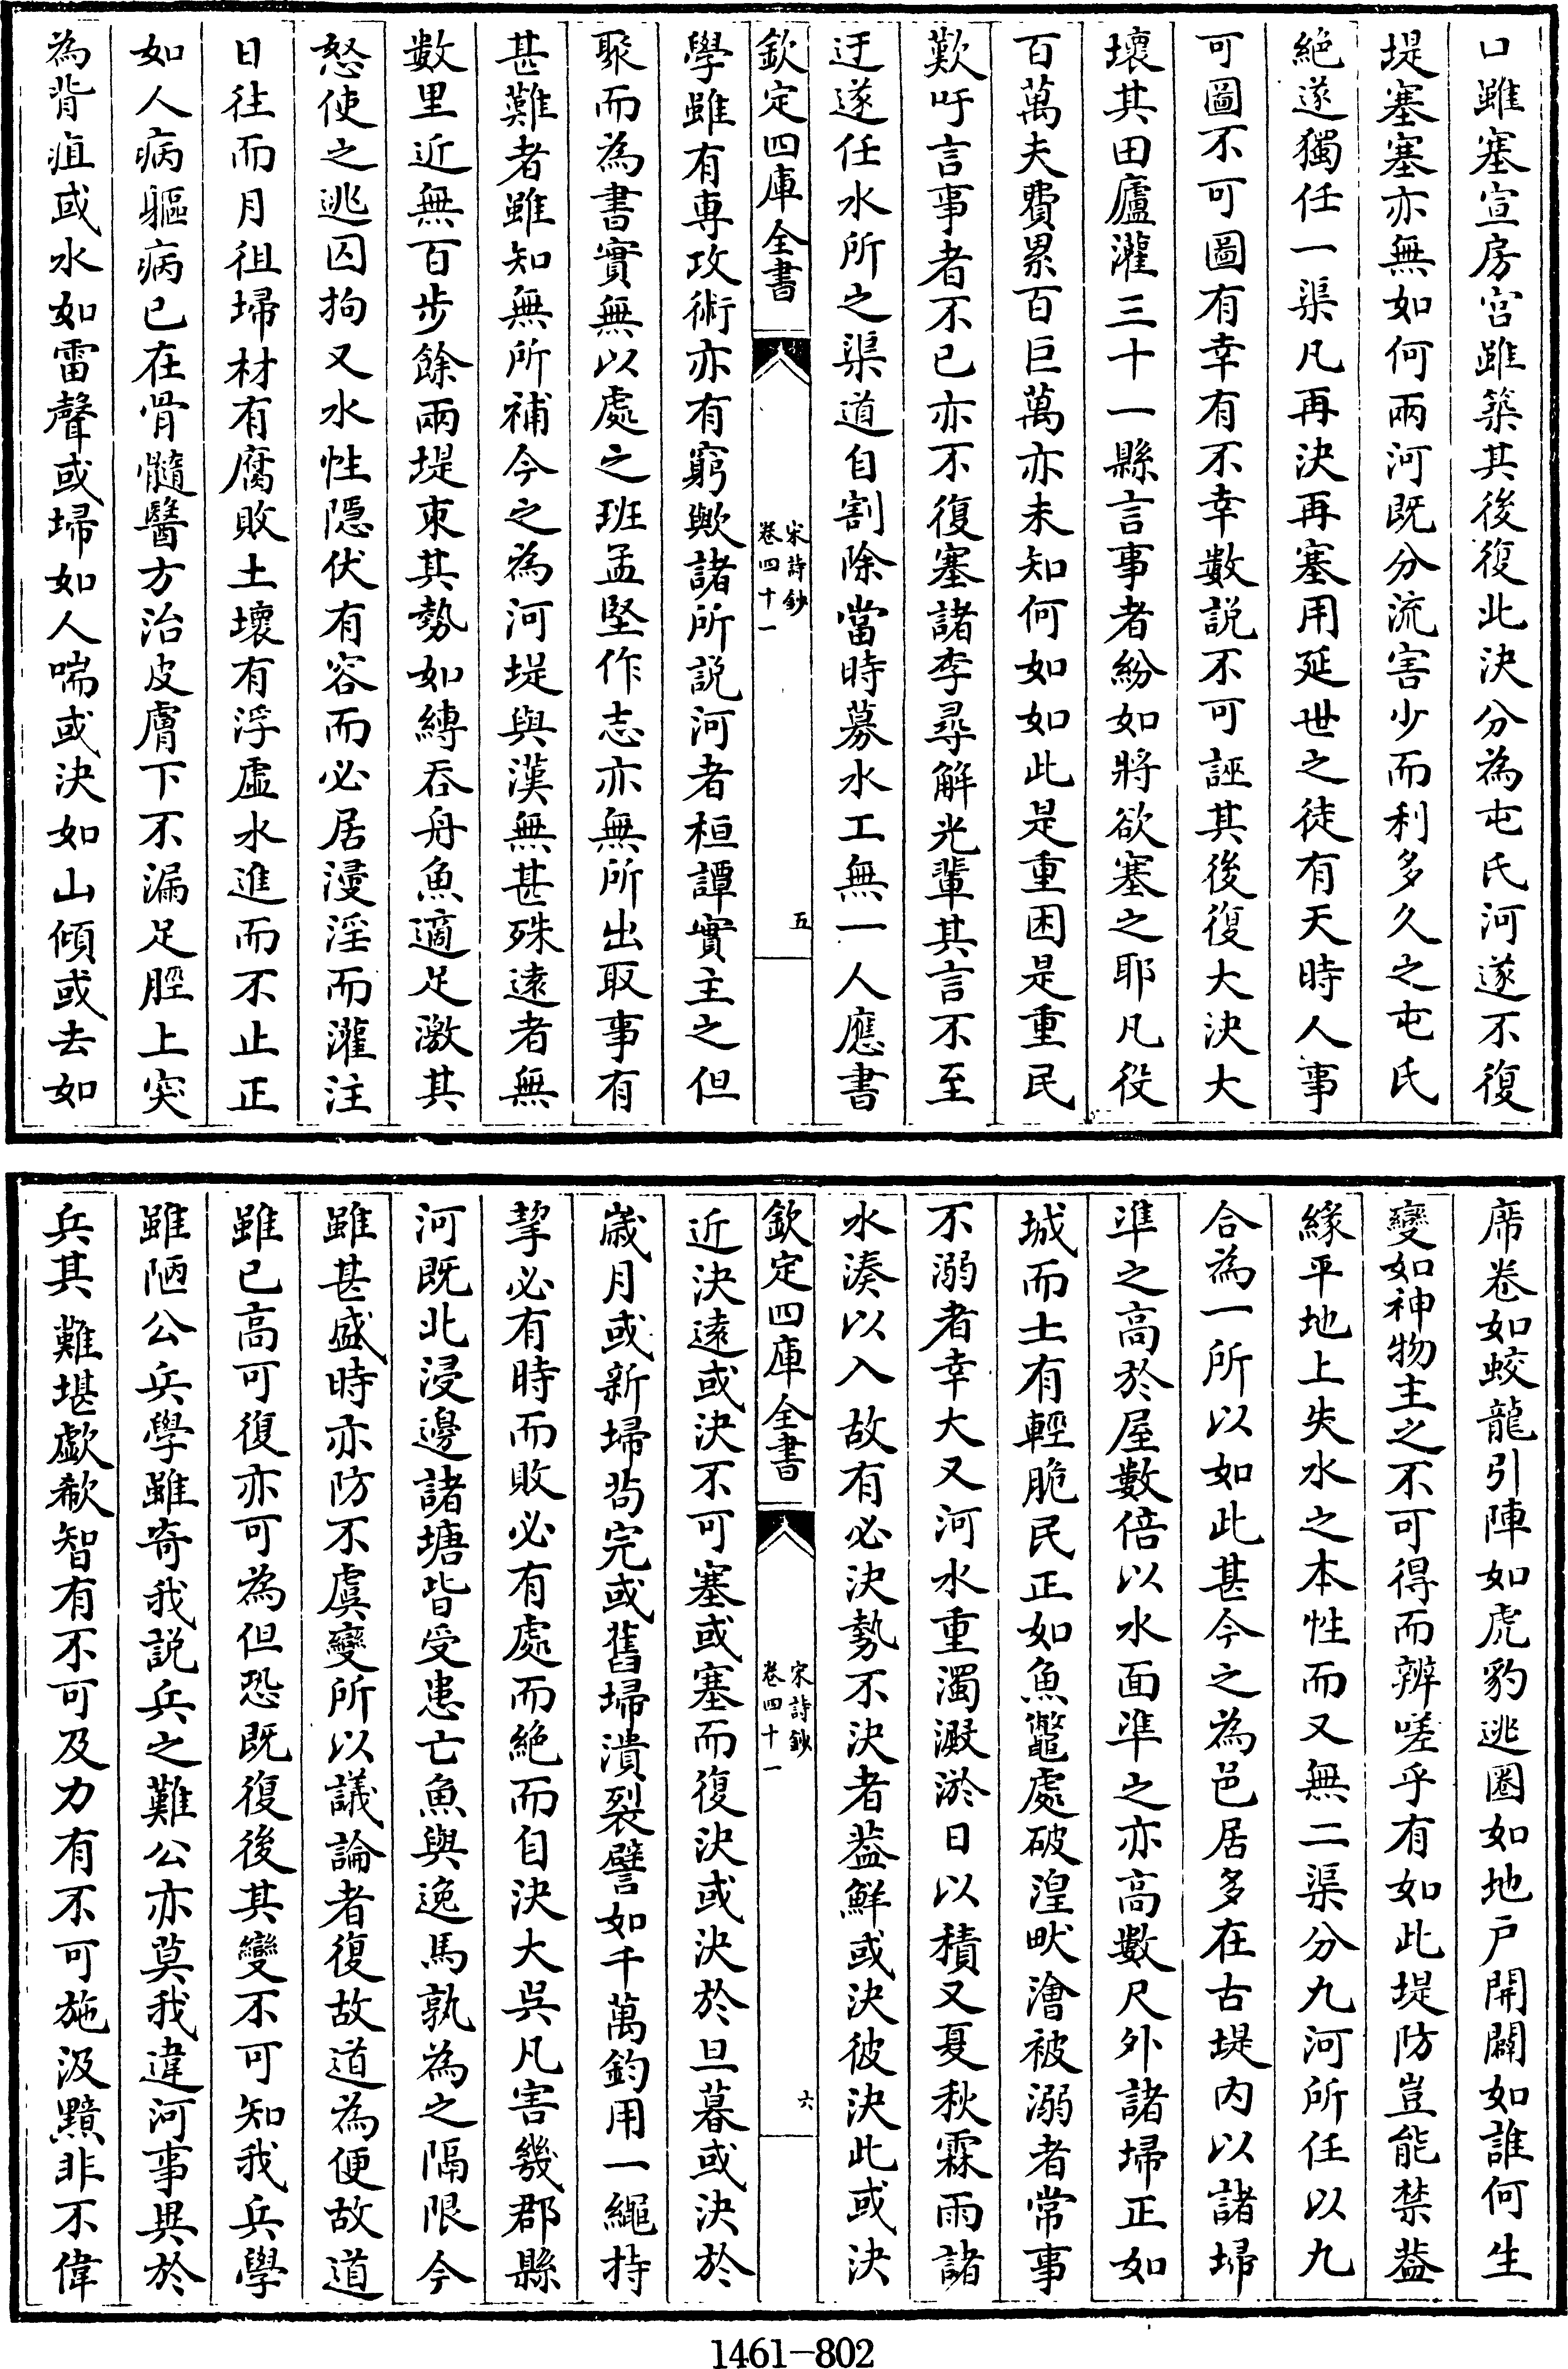 口雖塞宣房宫雖築其後復此決分為屯氏河遂不復
堤塞塞亦無如何兩河既分流害少而利多久之屯氏
絶遂獨任一渠凡再決再塞用延世之徒有天時人事
可圖不可圖有幸有不幸數説不可誣其後復大決大
壞其田廬灌三十一縣言事者紛如將欲塞之耶凡役
百萬夫費累百巨萬亦未知何如如此是重困是重民
歎吁言事者不已亦不復塞諸李尋解光輩其言不至
迂遂任水所之渠道自割除當時募水工無一人應書
欽定四庫全書
宋詩鈔
卷四十一
五
學雖有専攻術亦有窮歟諸所説河者桓譚實主之但
聚而為書實無以處之班孟堅作志亦無所出取事有
甚難者雖知無所補今之為河堤與漢無甚殊遠者無
數里近無百步餘兩堤束其勢如縛吞舟魚適足激其
怒使之逃囚拘又水性隱伏有容而必居浸淫而灌注
日往而月徂埽材有腐敗土壤有浮虛水進而不止正
如人病軀病已在骨髓醫方治皮膚下不漏足脛上突
為背疽或水如雷聲或埽如人喘或決如山傾或去如
席卷如蛟龍引陣如虎豹逃圈如地户開闢如誰何生
變如神物主之不可得而辨嗟乎有如此堤防豈能禁葢
緣平地上失水之本性而又無二渠分九河所任以九
合為一所以如此甚今之為邑居多在古堤内以諸埽
準之高於屋數倍以水面準之亦高數尺外諸埽正如
城而土有輕脆民正如魚鼈處破湟畎澮被溺者常事
不溺者幸大又河水重濁澱淤日以積又夏秋霖雨諸
水湊以入故有必決勢不決者葢鮮或決彼決此或決
欽定四庫全書
宋詩鈔
卷四十一
六
近決遠或決不可塞或塞而復決或決於旦暮或決於
歲月或新埽茍完或舊埽潰裂譬如千萬鈞用一繩持
挈必有時而敗必有處而絶而自決大吳凡害幾郡縣
河既北浸邊諸塘皆受患亡魚與逸馬孰為之隔限今
雖甚盛時亦防不虞變所以議論者復故道為便故道
雖已高可復亦可為但恐既復後其變不可知我兵學
雖陋公兵學雖寄我説兵之難公亦莫我違河事異於
兵其 難堪歔欷智有不可及力有不可施汲黯非不偉
1461-802